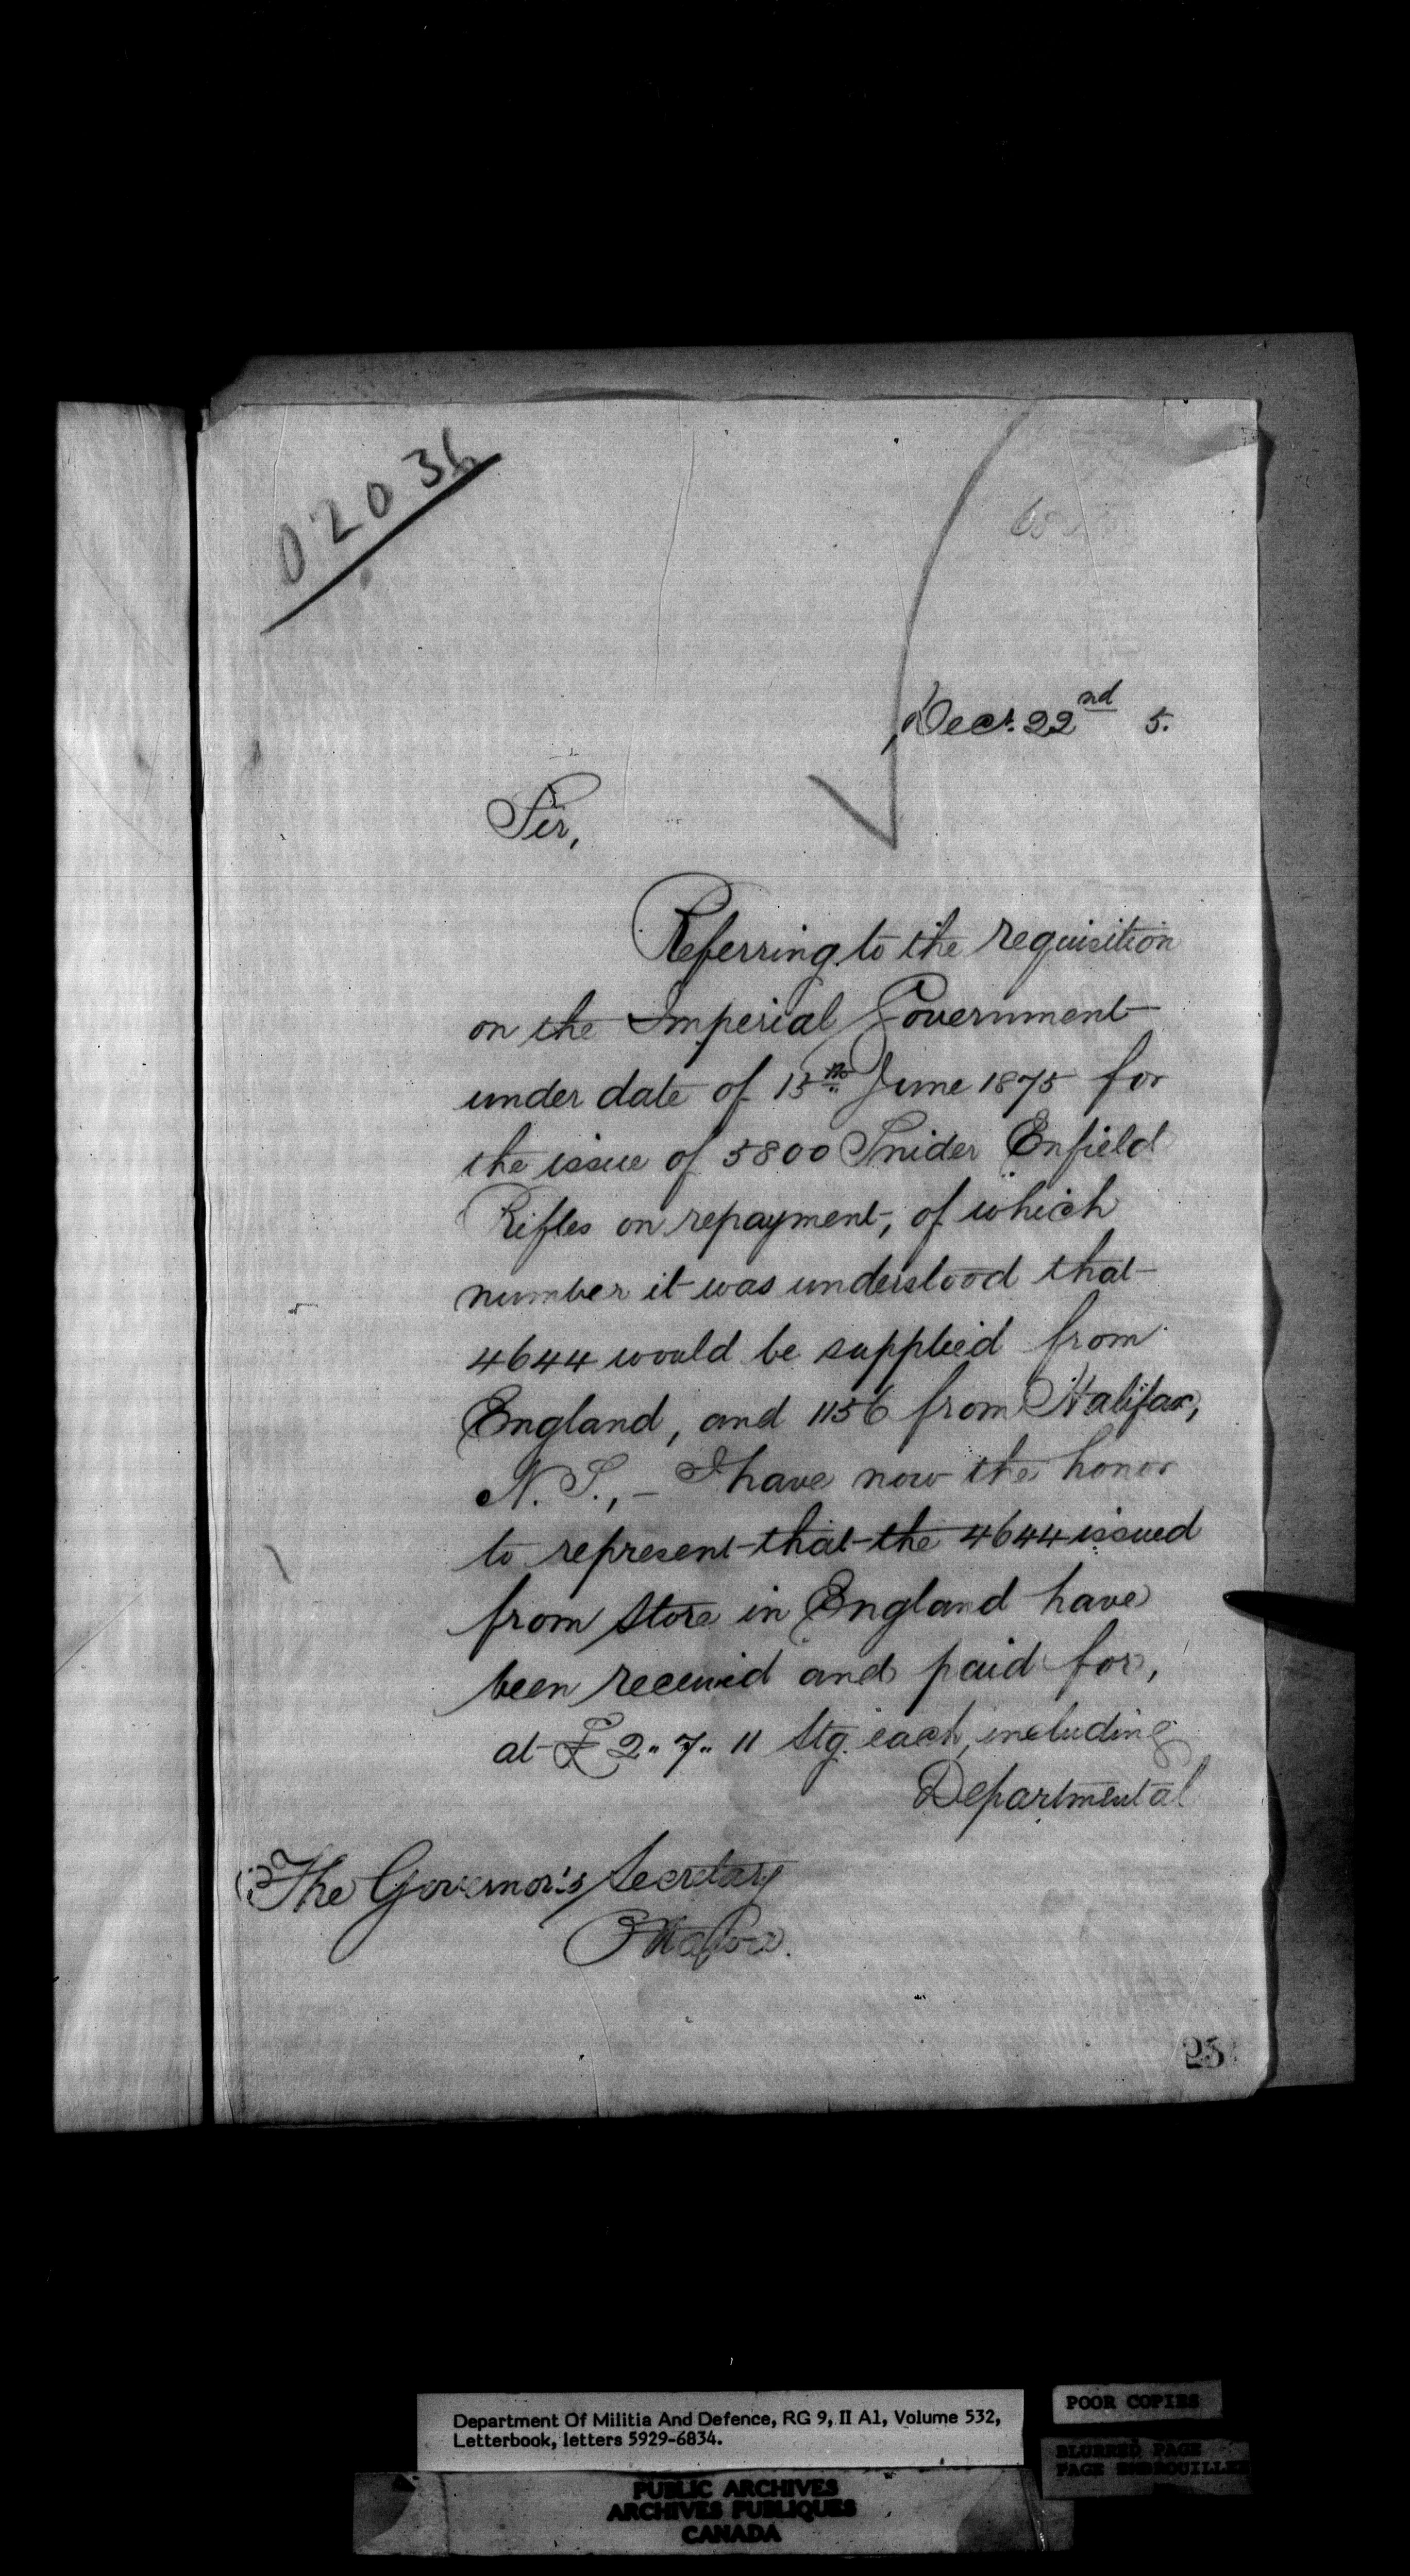 02036
Decr. 22nd 5.
Sir,
Referring to the requisition
on the Imperial Government
under date of 15th June 1875 for
the issue of 5800 Snider Enfield
Rifles on repayment, of which
number it was understood that
4644 would be supplied from
England, and 1156 from Halifax,
N. S., – I have now the honor
to represent that the 4644 issued
from Store in England have
been received and paid for,
at £2.. 7.. 11 Stg. each, including
Departmental
The Governor's Secretary
Ottawa.
25
Department Of Militia And Defence, RG 9, II A1, Volume 532,
Letterbook, letters 5929-6834.
POOR COPIES
BLURRED PAGE
PAGE EMBROUILLEE
PUBLIC ARCHIVES
ARCHIVES PUBLIQUES
CANADA